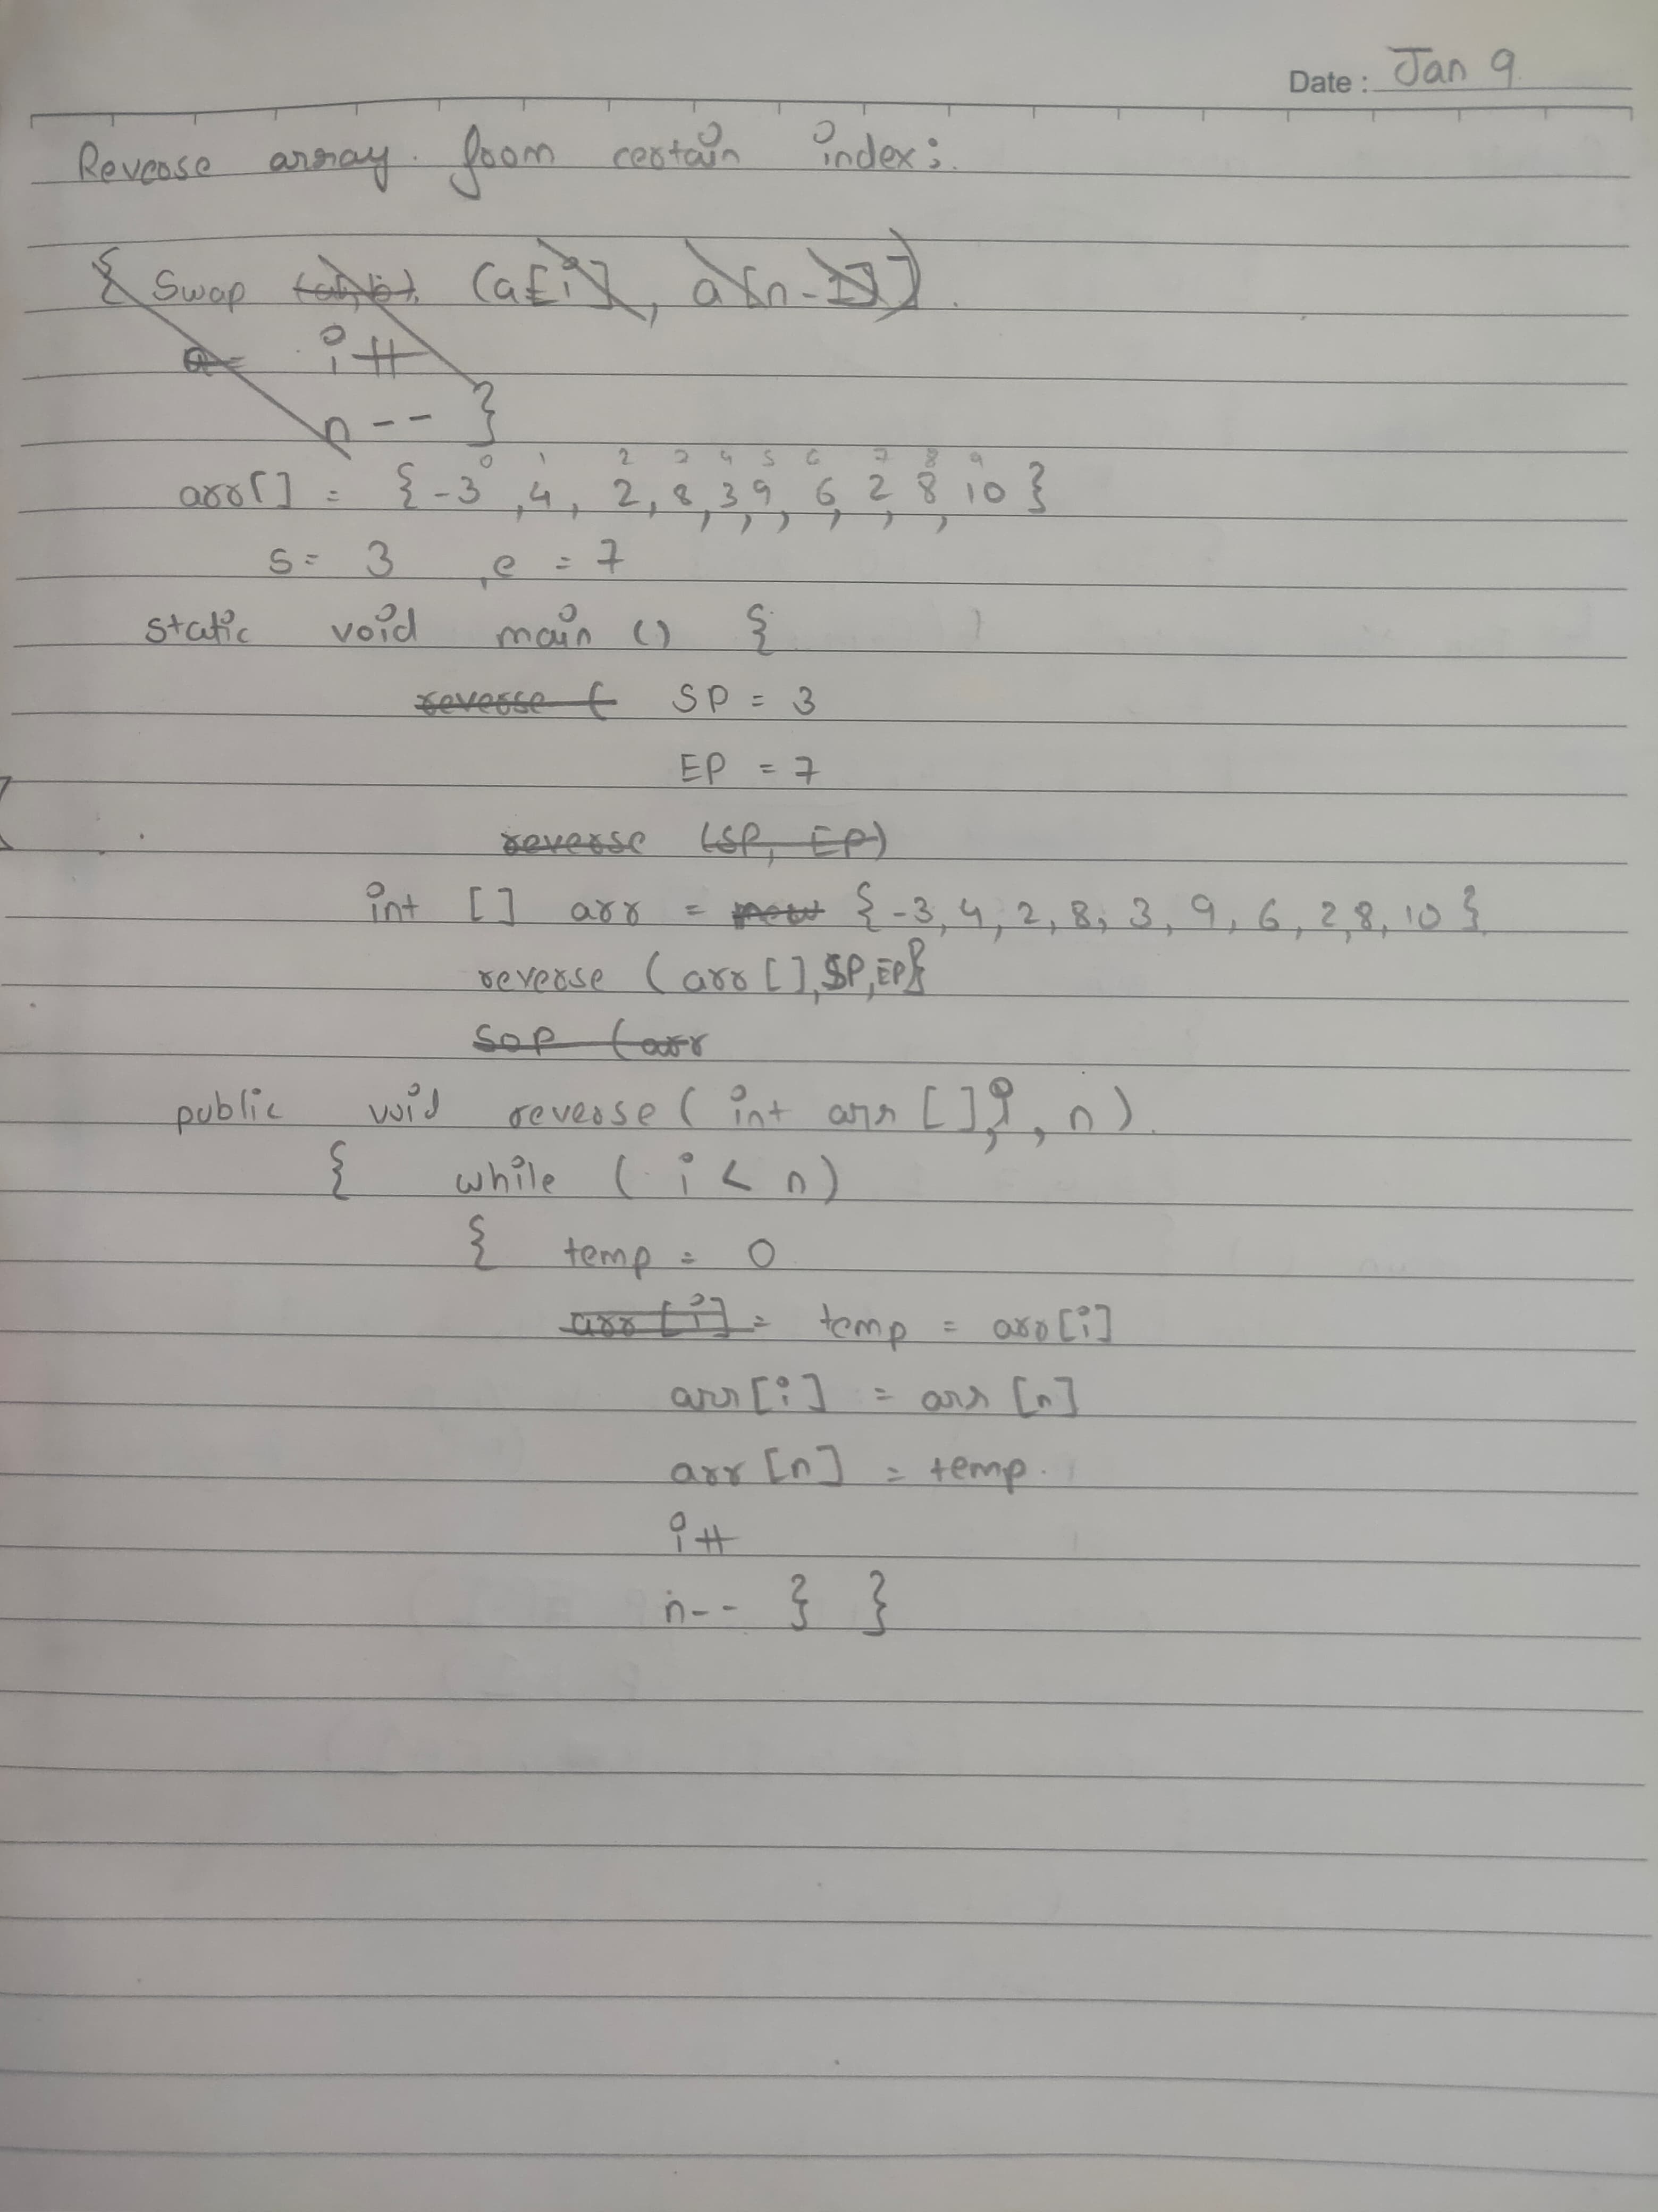 Date : Jan 9
Reverse array from certain index:
{ Swap (a,b), (a[i], a[n-1])
a= i++
n-- }
0 1 2 3 4 5 6 7 8 9
arr[] = {-3, 4, 2, 8, 3, 9, 6, 2, 8, 10 }
s= 3 , e = 7
static void main () {
reverse ( SP = 3
EP = 7
reverse (SP, EP)
int [] arr = new {-3, 4, 2, 8, 3, 9, 6, 2, 8, 10 }
reverse (arr [], SP, EP}
SOP (arr
public void reverse ( int arr [], i, n)
{ while ( i < n)
{ temp = 0
arr [i] = temp = arr[i]
arr[i] = arr [n]
arr [n] = temp
i++
n-- } }